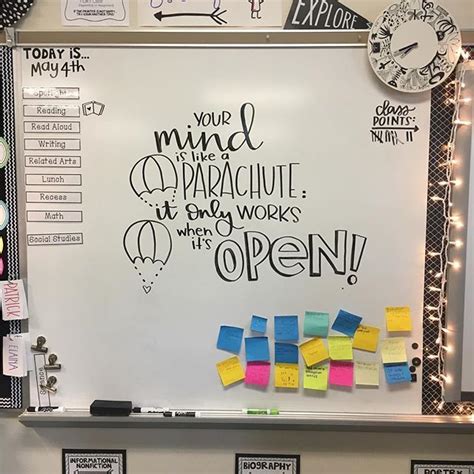 EXPLORE
TODAY IS...
MAY 4th
Spotlight
Reading
Read Aloud
Writing
Related Arts
Lunch
Recess
Math
Social Studies
class
POINTS:
YOUR
mind
is like a
PARACHUTE:
it only WORKS
when it's
OPEN!
PATRICK
INFORMATIONAL
NONFICTION
BIOGRAPHY
POETRY